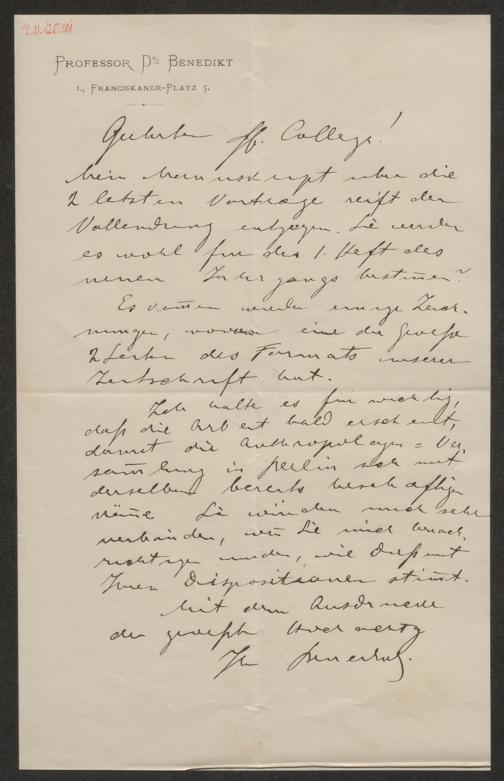 PROFESSOR Dr. BENEDIKT
I., FRANCISKANER-PLATZ 5.
Geehrter H. College!
Mein Manuskript uber die
2 letzten Vortræge reift der
Vollendung entgegen. Sie werden
es wohl fur das 1. Heft des
neuen Jahrgangs bestimen?
Es kommen wieder einige Zeich-
nungen, wovon eine die Groeße
2 Seiten des Formats unserer
Zeitschrift hat.
Ich halte es für wichtig,
daß die Arbeit bald erscheint,
damit die Anthropologen = Ver-
samlung in Berlin sich mit
derselben bereits beschæftigen
köñe Sie würden mich sehr
verbinden, weñ Sie mich benach-
richtigen würden, wie dieß mit
Ihren Dispositionen stimt.
Mit dem Ausdrucke
der groeßten Hochachtg
Ihr Benedikt.